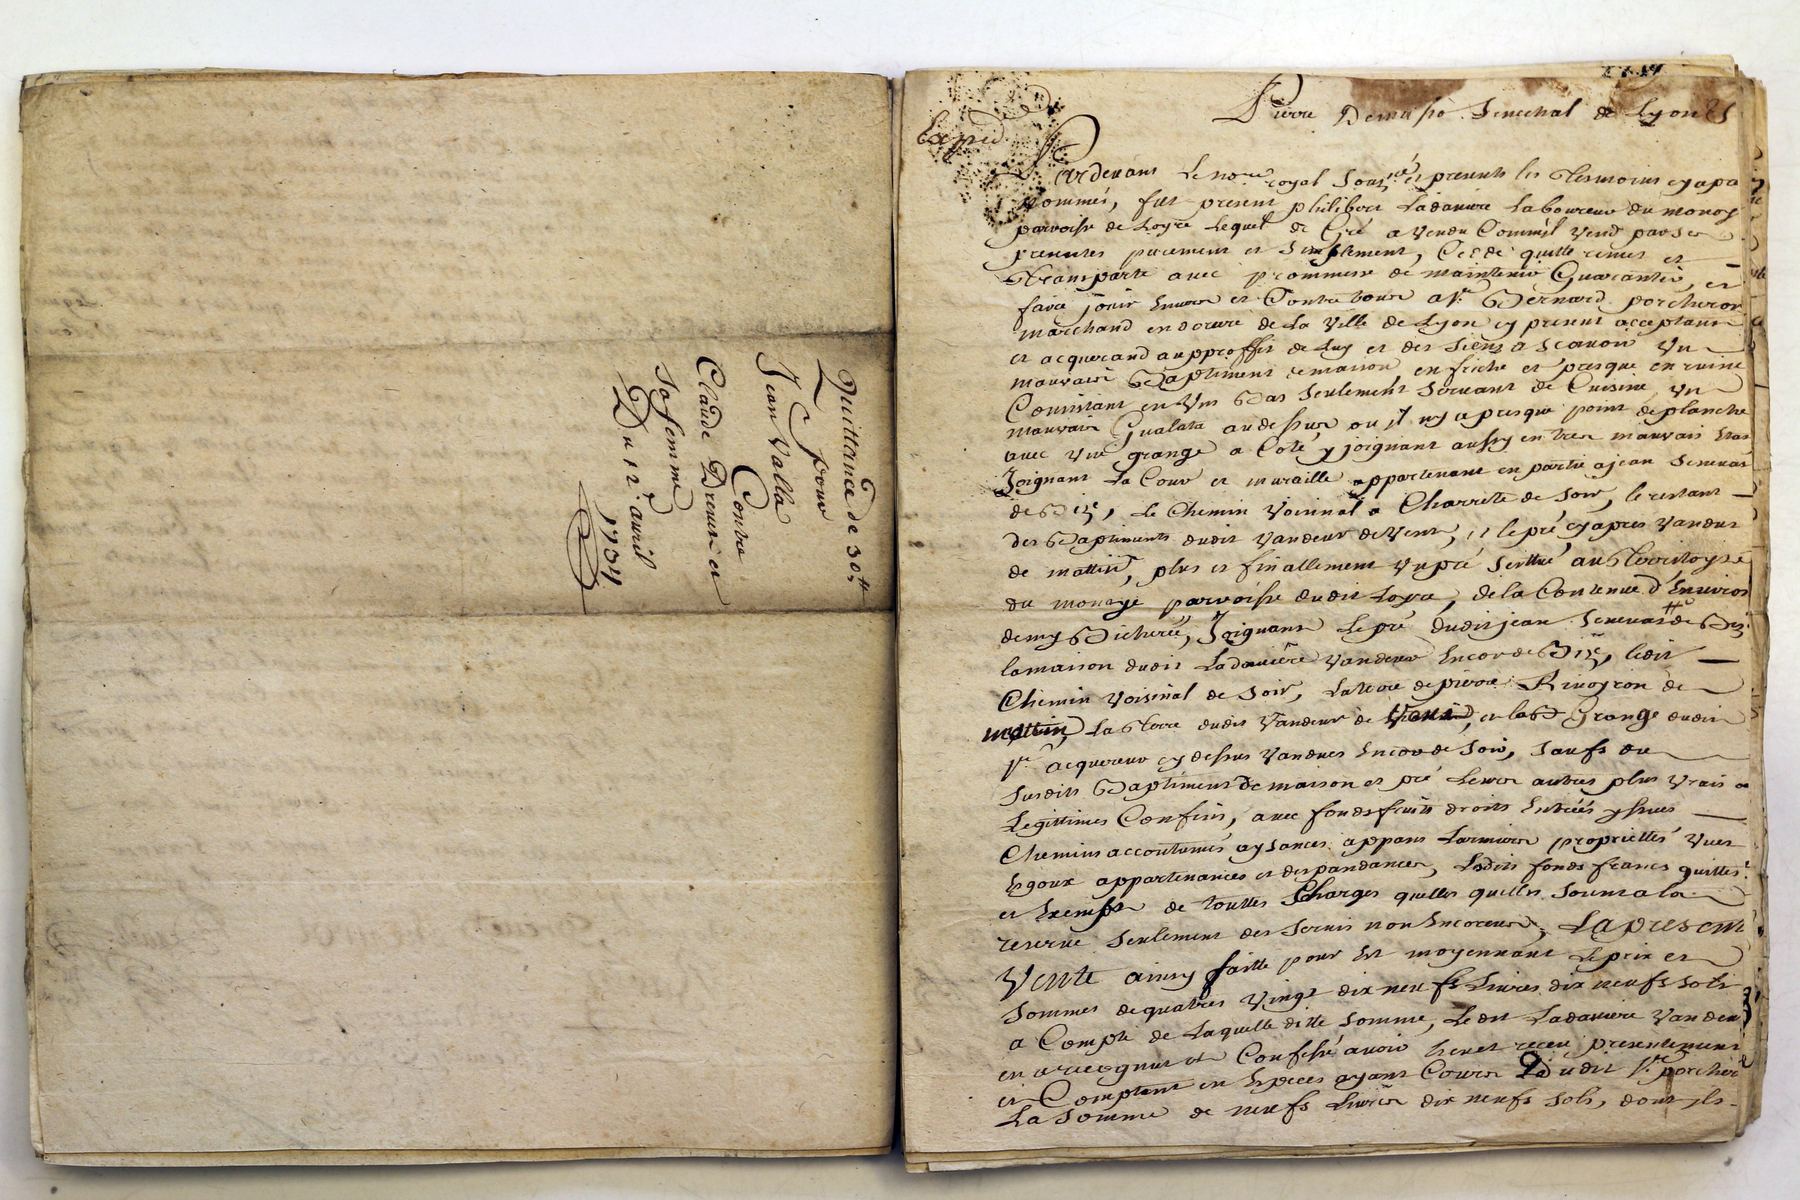 Quittance de 30ᵗᵗ
pour
Jean Valla
Contre
Claude Dreuse et
sa femme
Du 12ᵉ avril
1734
Pierre Senechal de Lyon
Exped
Pardevant Le noʳᵉ royal Souzⁿᵉ et presents les tesmoins cyapres
nommés, fut present philibert Ladaviere Laboureur du monoy
parroisse de Loyre Lequel de Gré a vendu Commil vend par ses
presentes purement et Simplement, Cede quitte remet et
transporte avec prommesse de maintenir Guarantir, et
faire jouir Envers et Contre tous a Sʳ Bernard porcheron
marchand en dorure de La Ville de Lyon cy present acceptant
et acquerand au proffit de Luy et des siens a scavoir Un
mauvais Baptiment de maison en friche et presque en ruine
Consistant en Un Bas seulement servant de Cuisine, Un
mauvais Gualata au dessus ou il ny a presque point de planche
avec une grange a Coté y joignant aussy en tres mauvais Etat
Joignant La Cour et muraille appartenant en partie a jean
de Bize, Le Chemin Voisinal a Charrette de soir, le restant
des Baptiments dudit Vandeur de Vent, et le pré cyapres Vandus
de mattin, plus et finallement Un pré scittué au territoyre
du monoye parroisse dudit Loyre, de la Contenue d'Environ
demy Bicheree, Joignant Le pré dudit jean de Bize
la maison dudit Ladaviere Vandeur Encor de Bize, ledit
Chemin Voisinal de soir, La terre de pierre Rivoyron de
mattin, La terre dudit Vandeur de Vent, et la de Grange dudit
Sʳ acquereur cy dessus Vandues Encor de soir, saufs du
susdits Baptiment de maison et pré Leurs autres plus Vrais et
Legittimes Confins, avec fonds fruits droits Entrées yssues
Chemins accoutumés aysances appans Larmiers proprietés Vues
Egoux appartenances et despandances, Lesdits fonds francs quittes
et Exempts de touttes Charges quelles quelles soient a la
reserve seulement des servis non Encorus, La presente
Vente ainsy faitte pour Et moyennant Le prix et
sommes de quatres Vingt dix neufs Livres dix neufs sols
a Compte de Laquelle ditte somme, Le dit Ladaviere Vandeur
en a recognut et Confessé avoir heu et receu presentement
et Comptant en Especes ayant Cours Dudit Sʳ porcheron
La somme de neufs Livres dix neufs sols, dont ils